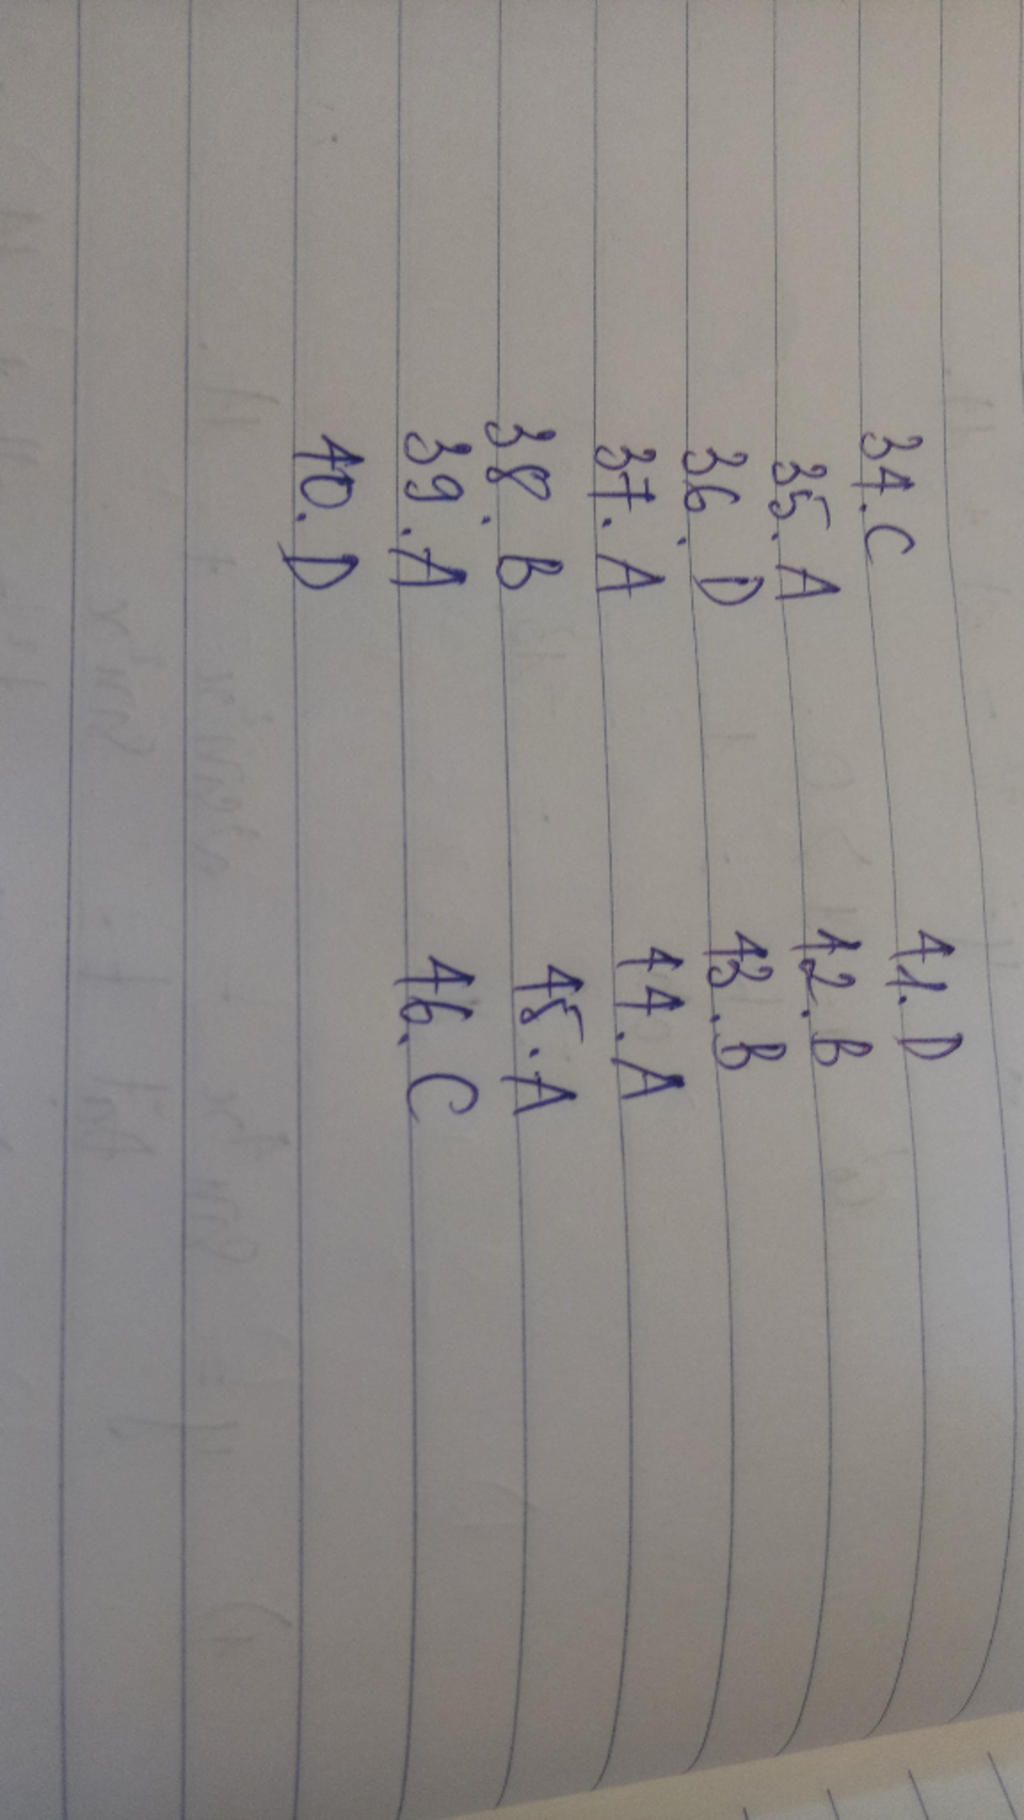 34. C
35. A
36. D
37. A
38. B
39. A
40. D
41. D
42. B
43. B
44. A
45. A
46. C